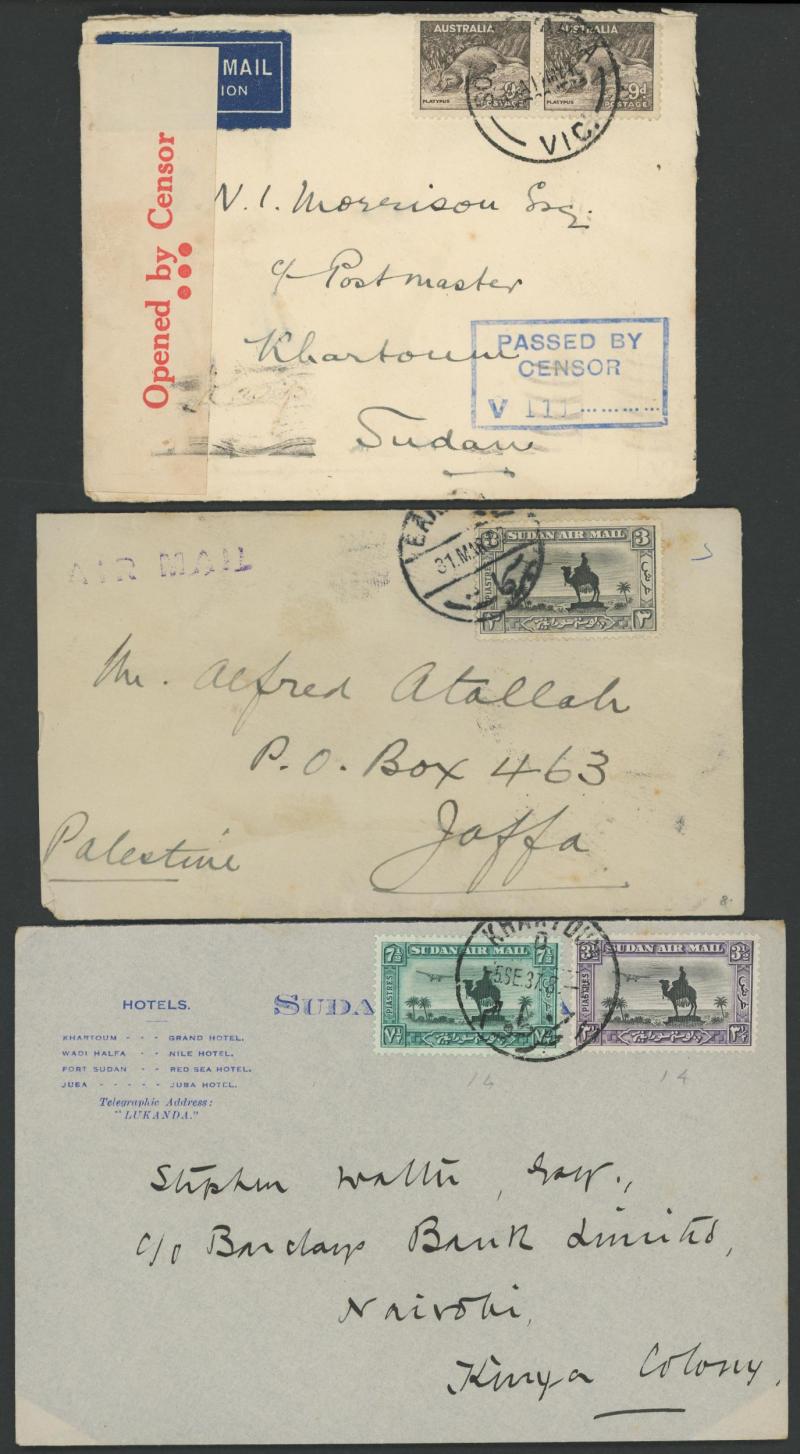 MAIL
ION
Opened by Censor
AUSTRALIA AUSTRALIA
PLATYPUS 9d POSTAGE PLATYPUS 9d POSTAGE
VIC.
N. I. Morrison Esq.
c/o Postmaster
Khartoum
Sudan
PASSED BY
CENSOR
V 111 ............
AIR MAIL
31.MAR
3 SUDAN AIR MAIL 3
PIASTRES
٣ ٣
Mr. Alfred Atallah
P.O. Box 463
Jaffa
Palestine
8.
HOTELS.
KHARTOUM - - - GRAND HOTEL.
WADI HALFA - - NILE HOTEL.
PORT SUDAN - - RED SEA HOTEL.
JUBA - - - - - - JUBA HOTEL.
Telegraphic Address:
"LUKANDA."
SUDA
7½ SUDAN AIR MAIL 7½
PIASTRES
٧½ ٧½
KHARTOU
5SE.37
3½ SUDAN AIR MAIL 3½
PIASTRES
٣½ ٣½
14 14
Stephen Walter, Esq.,
c/o Barclays Bank Limited,
Nairobi,
Kenya Colony.